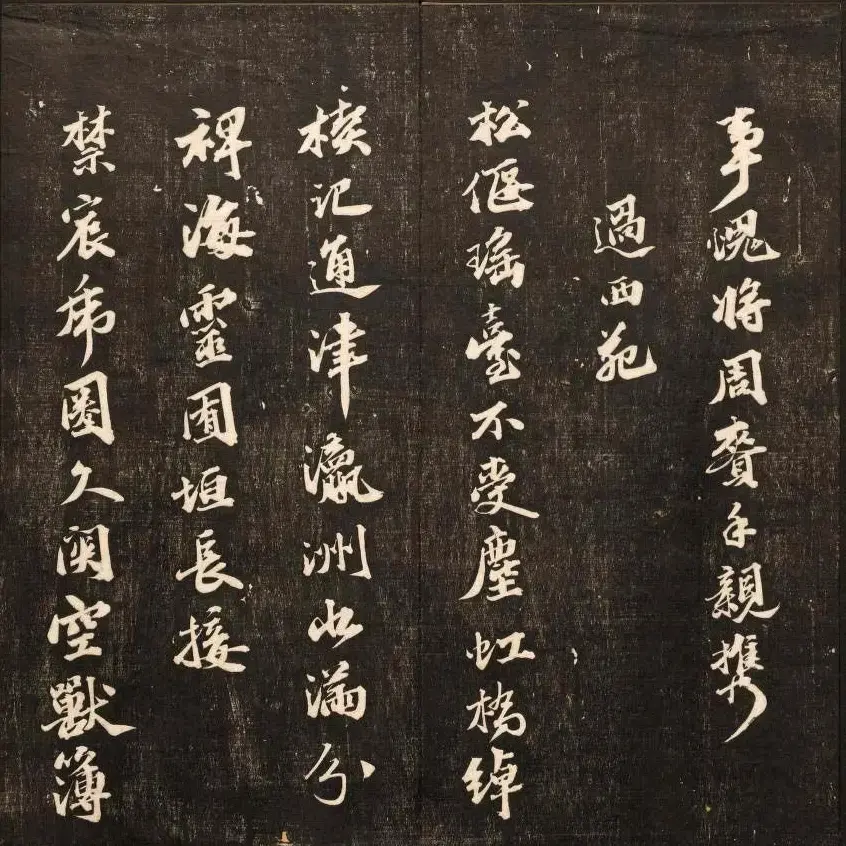 事愧將周賚手親携
過西苑
松偃瑤臺不受塵虹橋綽
楔記通津瀛洲水滿分
裨海靈囿垣長接
禁宸虎圈久闃空獸簿